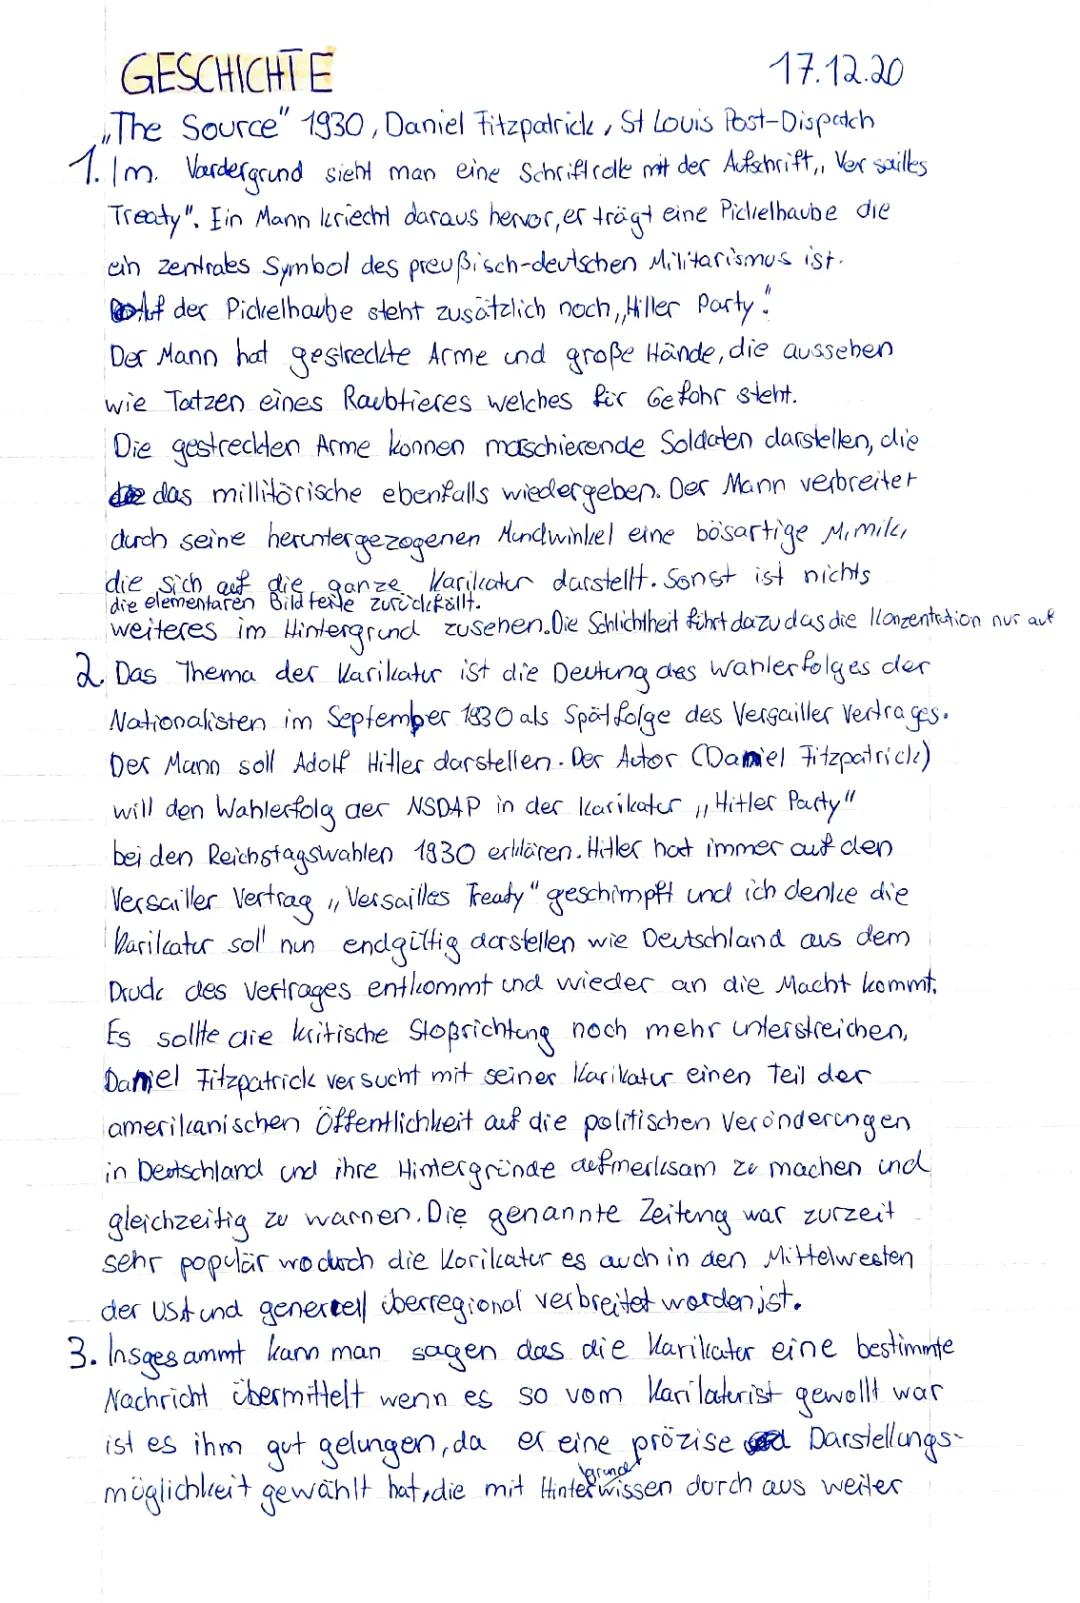 GESCHICHTE 17.12.20
„The Source" 1930, Daniel Fitzpatrick, St Louis Post-Dispatch
1. Im. Vordergrund sieht man eine Schriftrolle mit der Aufschrift „Versailles
Treaty". Ein Mann kriecht daraus hervor, er trägt eine Pickelhaube die
ein zentrales Symbol des preußisch-deutschen Militarismus ist.
Auf der Pickelhaube steht zusätzlich noch „Hitler Party".
Der Mann hat gestreckte Arme und große Hände, die aussehen
wie Tatzen eines Raubtieres welches für Gefahr steht.
Die gestreckten Arme konnen maschierende Soldaten darstellen, die
das millitärische ebenfalls wiedergeben. Der Mann verbreitet
durch seine heruntergezogenen Mundwinkel eine bösartige Mimik,
die sich auf die ganze Karikatur darstellt. Sonst ist nichts
weiteres im Hintergrund zusehen. Die Schlichtheit führt dazu das die Konzentration nur auf
die elementaren Bildteile zurückfällt.
2. Das Thema der Karikatur ist die Deutung des Wahlerfolges der
Nationalisten im September 1930 als Spätfolge des Versailler Vertrages.
Der Mann soll Adolf Hitler darstellen. Der Autor (Daniel Fitzpatrick)
will den Wahlerfolg der NSDAP in der Karikatur „Hitler Party"
bei den Reichstagswahlen 1930 erklären. Hitler hat immer auf den
Versailler Vertrag „Versailles Treaty" geschimpft und ich denke die
Karikatur soll nun endgültig darstellen wie Deutschland aus dem
Druck des Vertrages entkommt und wieder an die Macht kommt.
Es sollte die kritische Stoßrichtung noch mehr unterstreichen,
Daniel Fitzpatrick versucht mit seiner Karikatur einen Teil der
amerikanischen Öffentlichkeit auf die politischen Veränderungen
in Deutschland und ihre Hintergründe aufmerksam zu machen und
gleichzeitig zu warnen. Die genannte Zeitung war zurzeit
sehr populär wodurch die Karikatur es auch in den Mittelwesten
der USA und generell überregional verbreitet worden ist.
3. Insgesammt kann man sagen das die Karikatur eine bestimmte
Nachricht übermittelt wenn es so vom Karikaturist gewollt war
ist es ihm gut gelungen, da er eine präzise Darstellungs-
möglichkeit gewählt hat, die mit Hintergrundwissen durch aus weiter